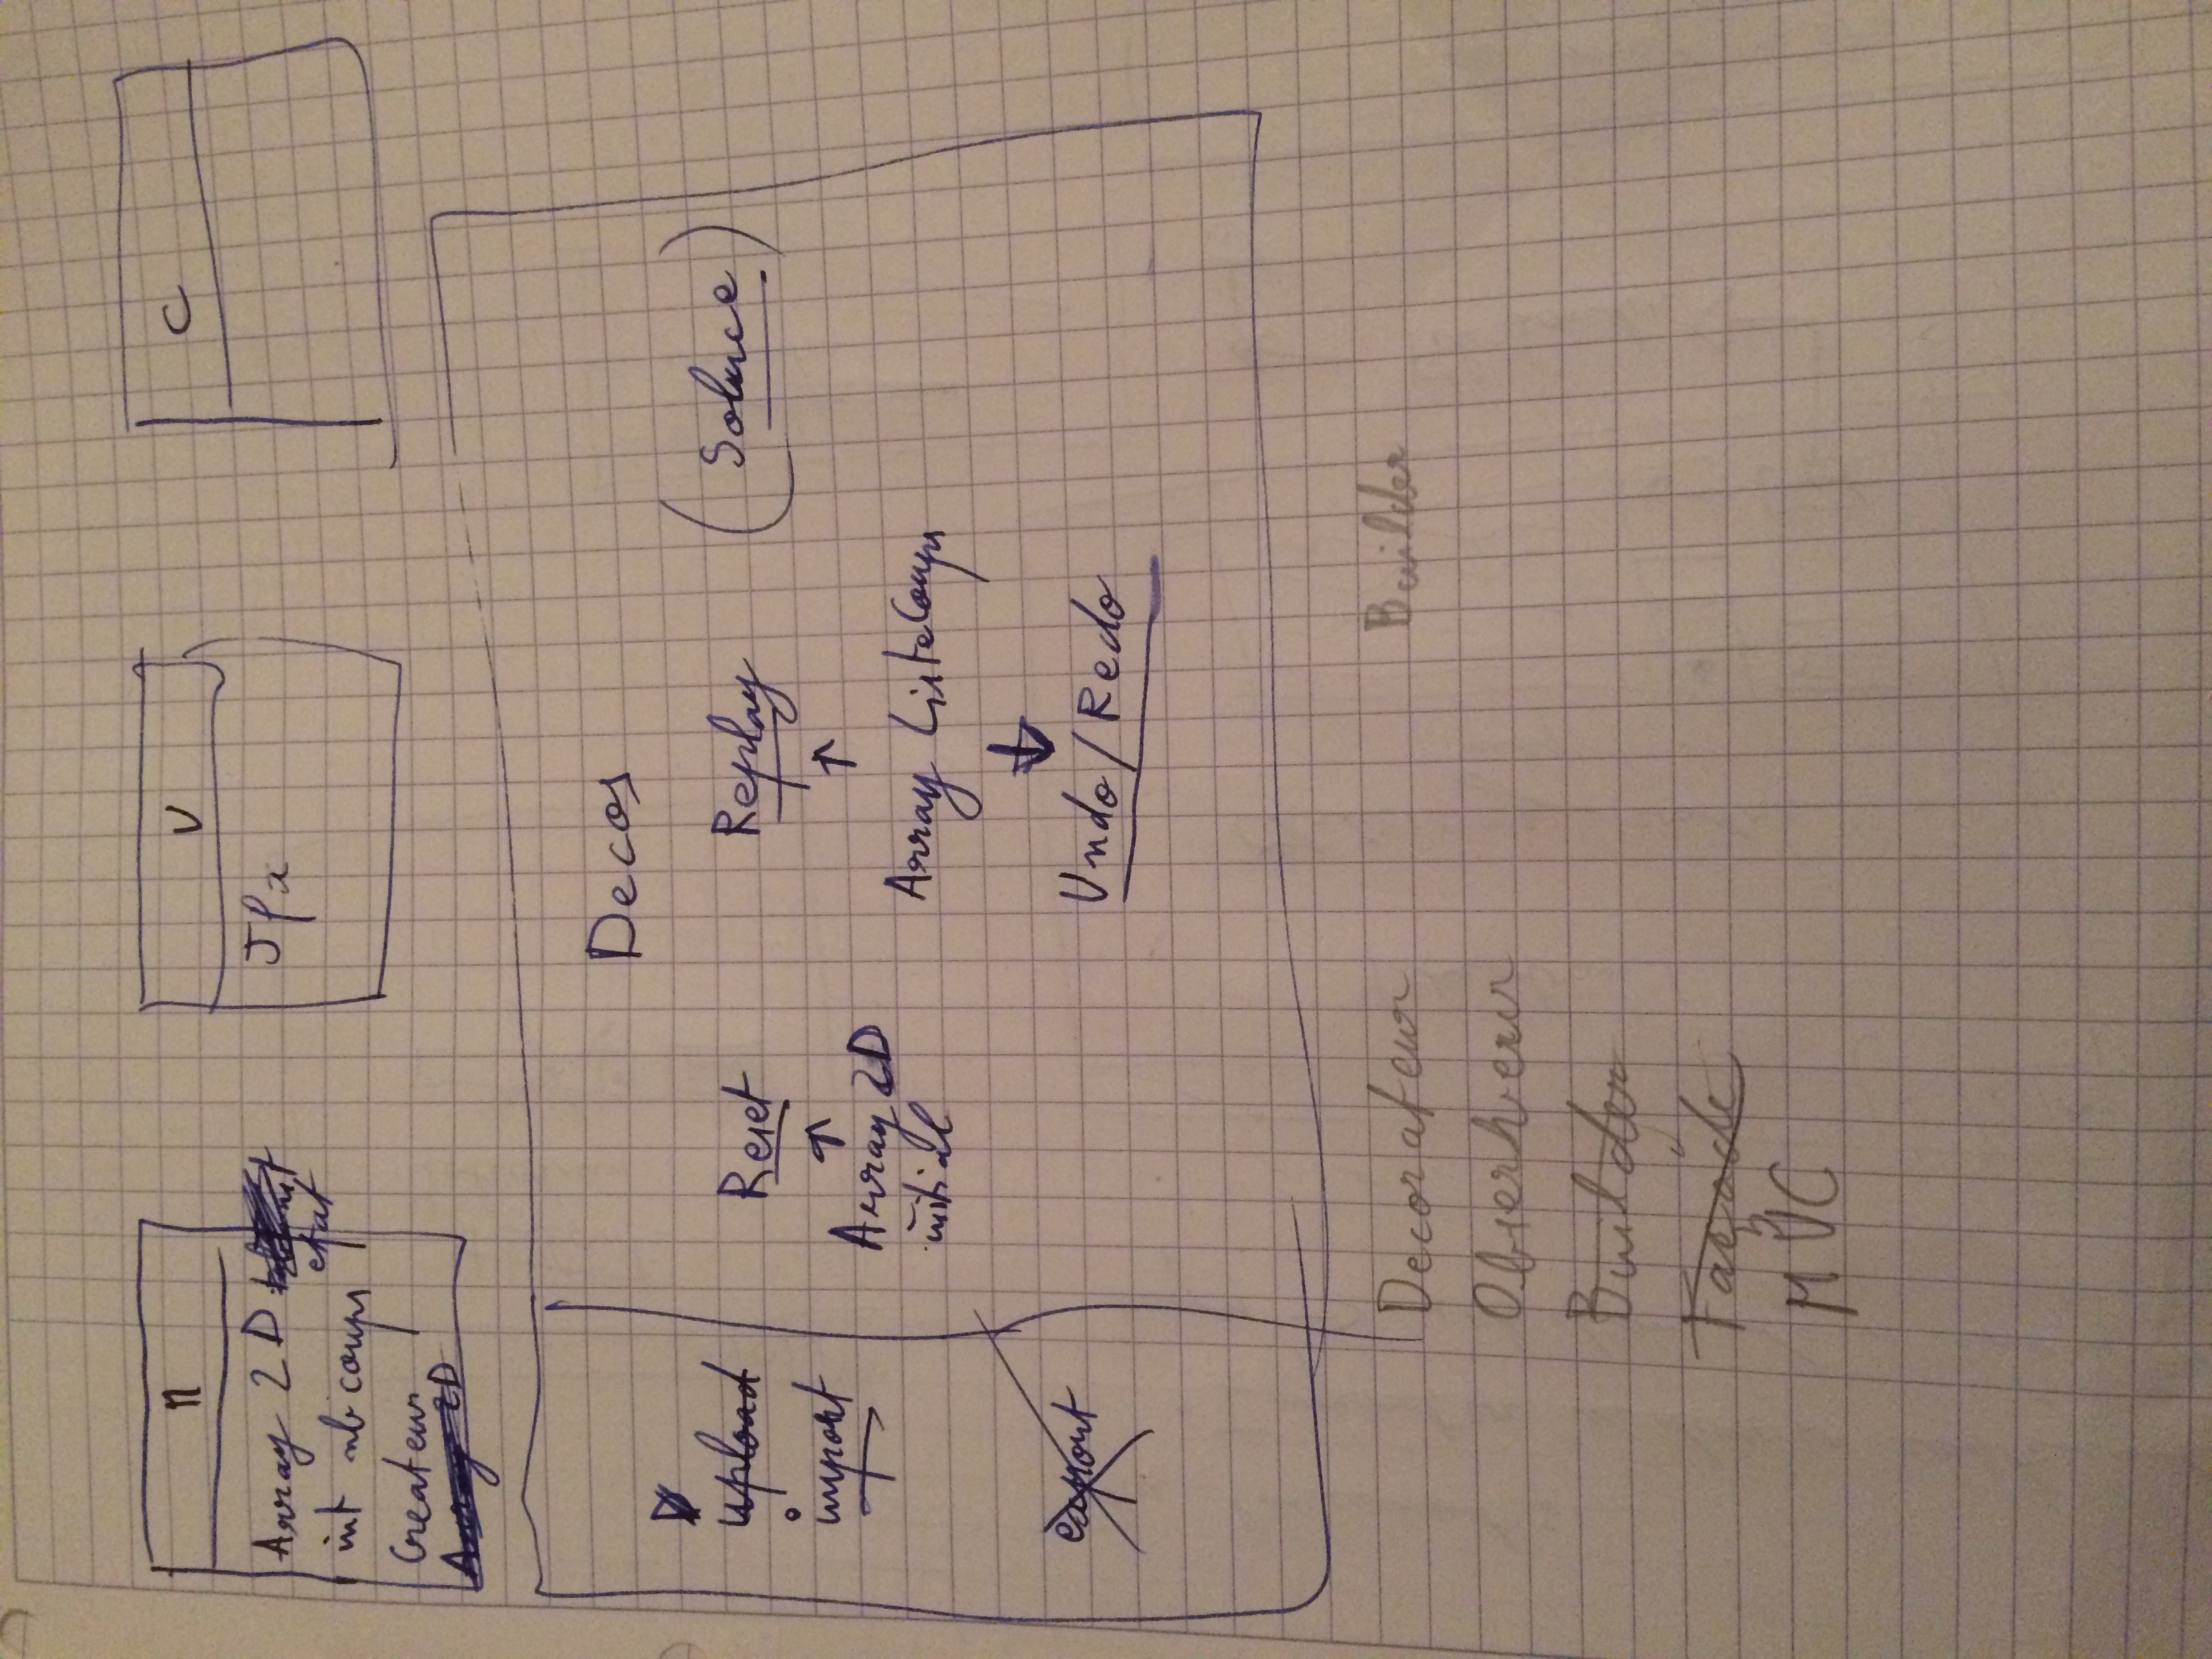 M
V
C
Array 2D
etat
int nb coups
Createur
Array 2D
Jfx
Decos
upload
import
export
Reset
Array 2D
initial
Replay
Array ListeCoups
Undo/Redo
(Soluce)
Decorateur
Builder
Observeur
Builder
Façade
MVC